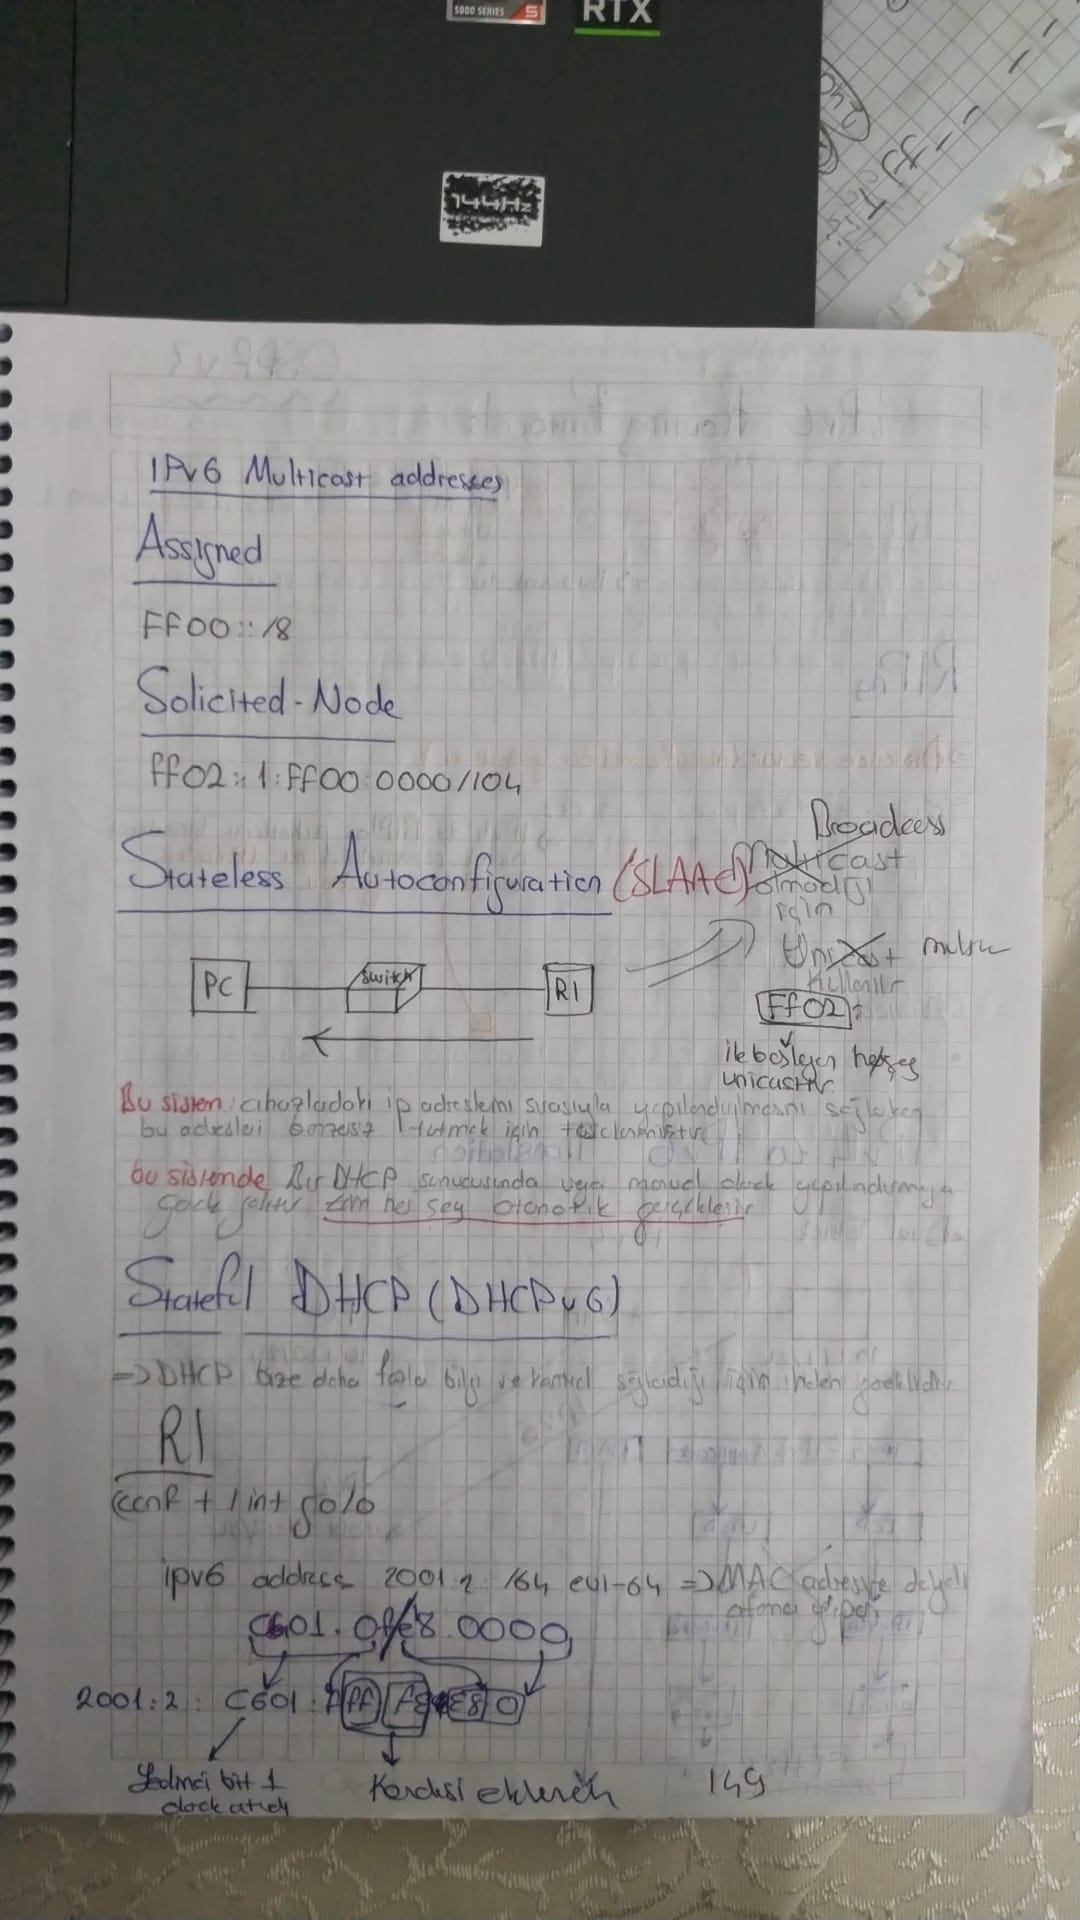 5000 SERIES 5
RTX
144Hz
IPv6 Multicast addresses
Assigned
FF00::/8
Solicited-Node
ff02::1:FF00:0000/104
Broadcess
Multicast
olmadığı
için
Stateless Autoconfiguration (SLAAC)
Unicast
Kullanılır
PC
Switch
R1
FF02::
ile başlayan herşey
unicasttir
Bu sistem: cihazlardaki ip adreslerini sırasıyla yapılandırılmasını sağlarken
bu adresleri benzersiz tutmak için
bu sistemde Bir DHCP sunucusunda veya manuel olarak yapılandırmaya
gerek yoktur her şey otomatik gerçekleşir
Stateful DHCP (DHCPv6)
=> DHCP bize daha fazla bilgi ve kontrol sağladığı için halen gereklidir
R1
conf t / int g0/0
ipv6 address 2001:2::/64 eui-64 => MAC adresine dayalı
atama yapar
C601.0fe8.0000
2001:2: C601: ff E8 0
Yedinci bit 1
olarak atıldı
Kendisi eklenen
149